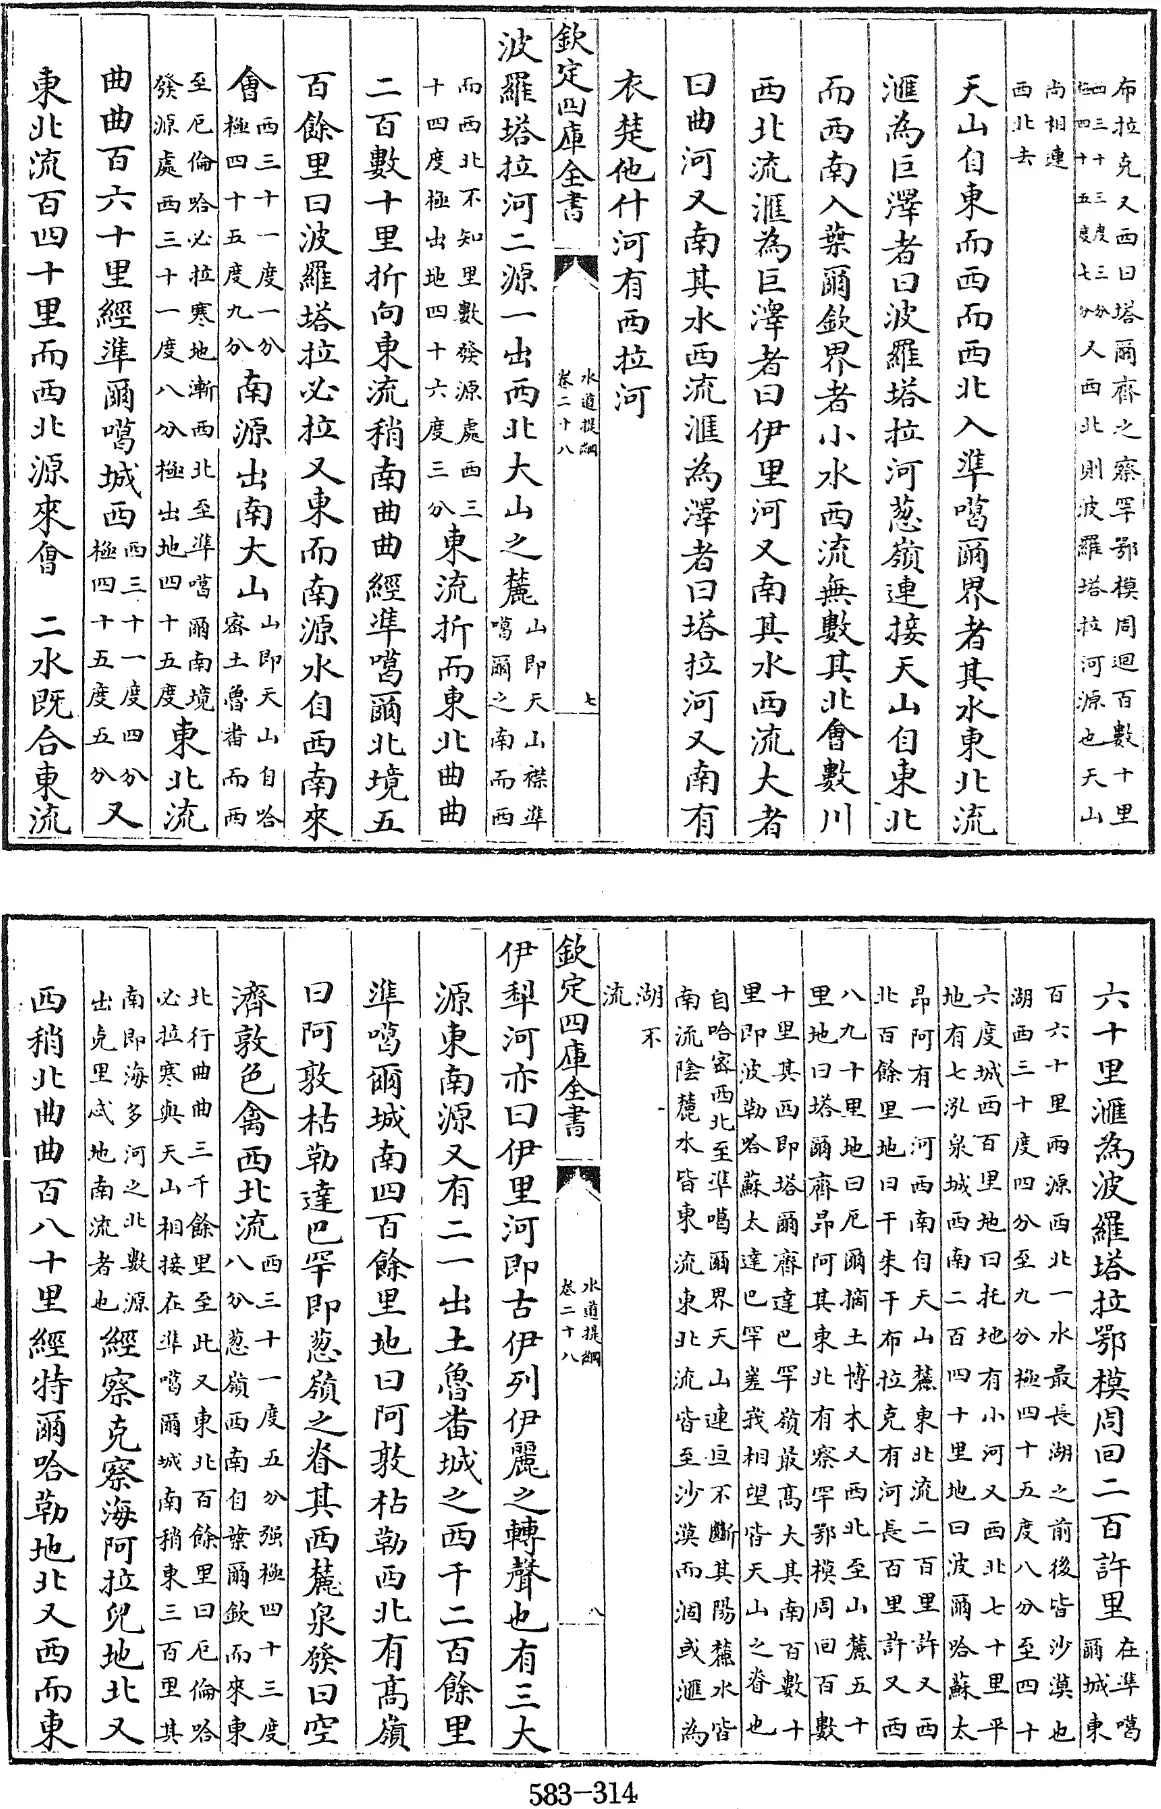 布拉克又西曰塔爾齊之察罕鄂模周迴百數十里
西三十三度三分極四十五度七分又西北則波羅塔拉河源也天山
尚相連
西北去
天山自東而西而西北入準噶爾界者其水東北流
滙為巨澤者曰波羅塔拉河葱嶺連接天山自東北
而西南入葉爾欽界者小水西流無數其北會數川
西北流滙為巨澤者曰伊里河又南其水西流大者
曰曲河又南其水西流滙為澤者曰塔拉河又南有
衣楚他什河有西拉河
欽定四庫全書
水道提綱
卷二十八
七
波羅塔拉河二源一出西北大山之麓山即天山襟準噶爾之南而西
而西北不知里數發源處西三十四度極出地四十六度三分東流折而東北曲曲
二百數十里折向東流稍南曲曲經準噶爾北境五
百餘里曰波羅塔拉必拉又東而南源水自西南來
會西三十一度一分極四十五度九分南源出南大山山即天山自哈密土魯番而西
至厄倫哈必拉寒地漸西北至準噶爾南境發源處西三十一度八分極出地四十五度東北流
曲曲百六十里經準爾噶城西西三十一度四分極四十五度五分又
東北流百四十里而西北源來會 二水既合東流
六十里滙為波羅塔拉鄂模周回二百許里在準噶爾城東
百六十里兩源西北一水最長湖之前後皆沙漠也
湖西三十度四分至九分極四十五度八分至四十
六度城西百里地曰托地有小河又西北七十里平
地有七泓泉城西南二百四十里地曰波爾哈蘇太
昂阿有一河西南自天山麓東北流二百里許又西
北百餘里地曰干朱干布拉克有河長百里許又西
八九十里地曰厄爾摘土博木又西北至山麓五十
里地曰塔爾齊昂阿其東北有察罕鄂模周回百數
十里其西即塔爾齊達巴罕嶺最高大其南百數十
里即波勒哈蘇太達巴罕崟我相望皆天山之脊也
自哈密西北至準噶爾界天山連亘不斷其陽麓水皆
南流陰麓水皆東流東北流皆至沙漠而涸或滙為
湖不
流
欽定四庫全書
水道提綱
卷二十八
八
伊犁河亦曰伊里河即古伊列伊麗之轉聲也有三大
源東南源又有二一出土魯番城之西千二百餘里
準噶爾城南四百餘里地曰阿敦枯勒西北有高嶺
曰阿敦枯勒達巴罕即葱嶺之脊其西麓泉發曰空
濟敦色禽西北流西三十一度五分强極四十三度八分葱嶺西南自葉爾欽而來東
北行曲曲三千餘里至此又東北百餘里曰厄倫哈必拉寒與天山相接在準噶爾城南稍東三百里其
南即海多河之北數源出虎里忒地南流者也經察克察海阿拉兒地北又
西稍北曲曲百八十里經特爾哈勒地北又西而東
583-314